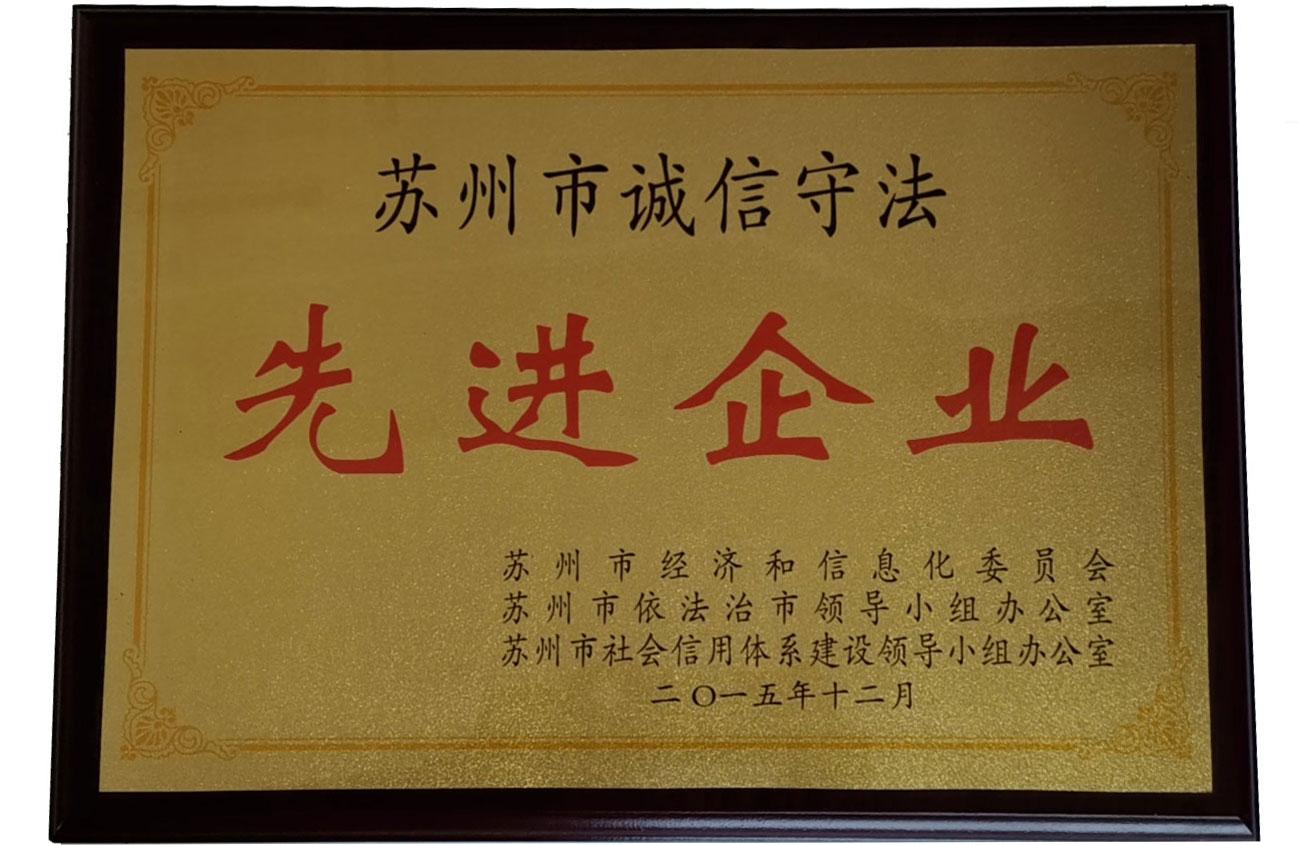 苏州市诚信守法
先进企业
苏州市经济和信息化委员会
苏州市依法治市领导小组办公室
苏州市社会信用体系建设领导小组办公室
二〇一五年十二月